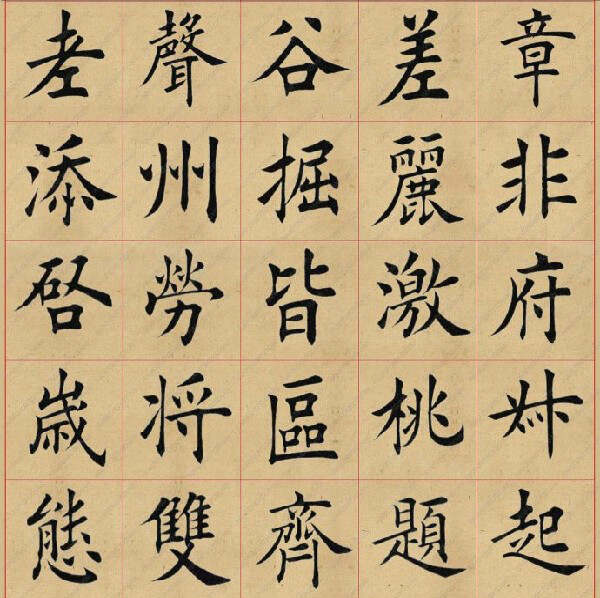 聲谷差章
添州掘麗非
啓勞皆激府
嵗将區桃
態雙齊題起